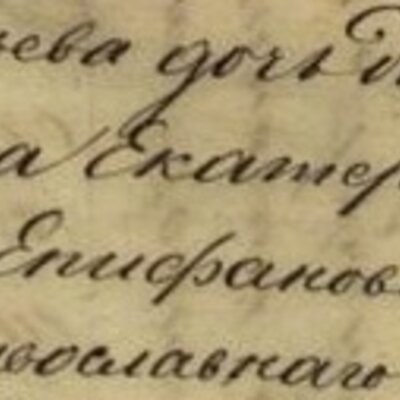 ьева дочь
а Екатер
Епифанов
вославнаго